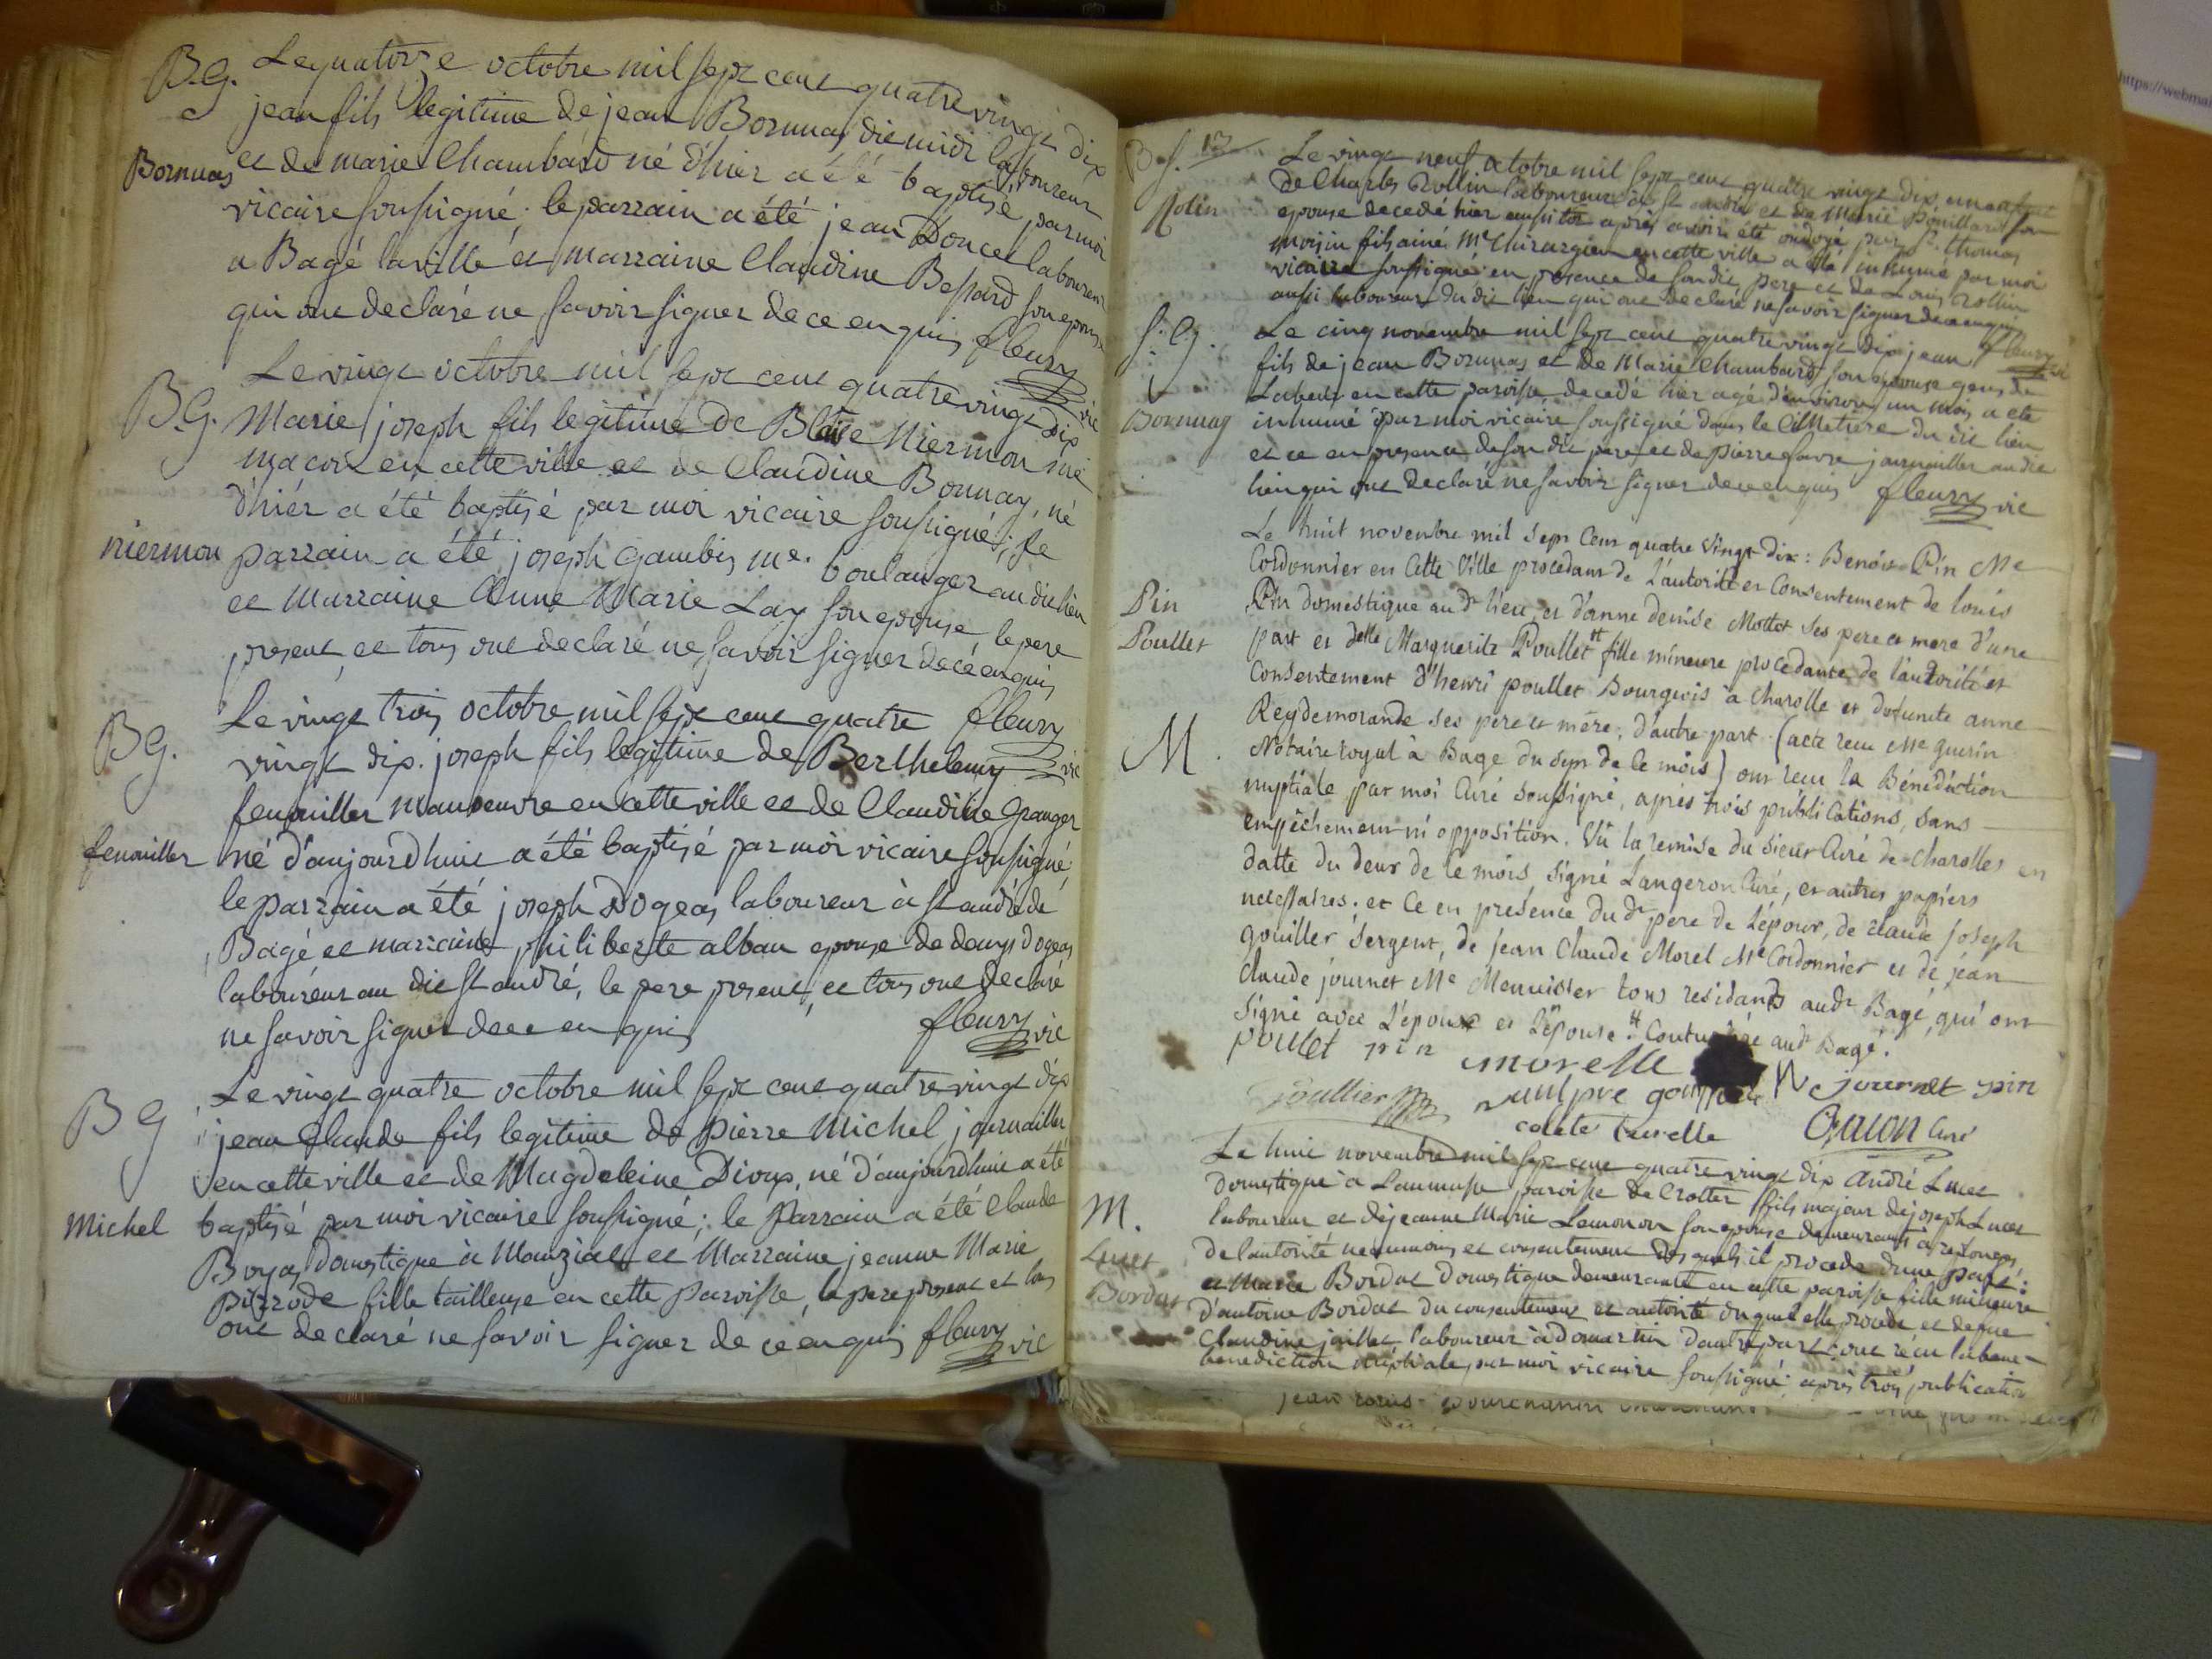 B.G.
Le quatorze octobre mil sept cent quatre vingt dix
jean fils legitime de jean Bornuas dit midi laboureur
Bornuas
et de marie Chambard né d'hier a été baptisé par moi
vicaire soussigné; le parrain a été jean Doucet laboureur
a Bagé la ville et marraine Claudine Besard son epouse
qui ont declaré ne savoir signer de ce enquis fleury vic
B.G.
Le vingt octobre mil sept cent quatre vingt dix
Marie joseph fils legitime de Blaise Niermon me
macon en cette ville et de Claudine Bonnay, né
d'hiér a été baptisé par moi vicaire soussigné; le
niermon
parrain a été joseph Gambis me. boulanger audit lieu
et marraine Anne Marie Lay son epouse le pere
present, et tous ont declaré ne savoir signer de cé enquis
fleury vic
BG.
Le vingt trois octobre mil sept cent quatre
vingt dix. joseph fils legitime de Berthelemy
fenouiller manoeuvre en cette ville et de Claudine Granger
fenouiller
né d'aujourd'huit a été baptisé par moi vicaire soussigné
le parrain a été joseph Dogeas laboureur à st andré de
Bagé et marraine philiberte alban epouse de denys dogeas
laboureur au dit st andré, le pere present, et tous ont declaré
ne savoir signer de ce enquis
fleury vic
BG
Le vingt quatre octobre mil sept cent quatre vingt dix
jean Claude fils legitime de pierre Michel journailler
en cette ville et de Magdeleine Dioux, né d'aujourd'huit a été
Michel
baptisé par moi vicaire soussigné; le Parrain a été Claude
Boyas domestique à Manziat et Marraine jeanne Marie
Pirrode fille tailleuse en cette Paroisse, le pere present et tous
ont declaré ne savoir signer de cé enquis fleury vic
13
Le vingt neuf octobre mil sept cent quatre vingt dix, un enfant
de Charles Rollin laboureur à st andré et de Marie Pouillard son
Rolin
epouse decedé hier aussitot après avoir été ondoyé par Sr. thomas
moisin fils ainé Me Chirurgien en cette ville a été inhumé par moi
vicaire soussigné en presence de son dit pere et de Louis Rollin
aussi laboureur du dit lieu qui ont declaré ne savoir signer de ce enquis
fleury vic
S.G.
Le cinq novembre mil sept cent quatre vingt dix jean
fils de jean Bornuas et de Marie Chambard son epouse gens de
Labeur en cette paroisse, decedé hier agé d'environ un mois a eté
Bornuay
inhumé par moi vicaire soussigné dans le Cimetiere du dit lieu
et ce en presence de son dit pere et de pierre favre journailler audit
lieu qui ont declaré ne savoir signer de ce enquis fleury vic
Le huit novembre mil sept Cent quatre Vingt dix: Benoit Pin Me
Cordonnier en Cette Ville procedant de L'autorité et Consentement de louis
Pin
Pin domestique audt lieu et d'anne denise Mottet ses pere et mere d'une
Poullet
part et delle Marguerite Poullet # fille mineure procedante de l'autorité et
Consentement d'henri poullet Bourgeois à Charolle et defunte anne
M.
Reydemorande ses pere et mère, d'autre part (acte recu Me guerin
Notaire royal à Bagé du sept de Ce mois) ont recu la Bénédiction
nuptiale par moi Curé soussigné, après trois publications, sans
empêchement ni opposition. Vû la remise du sieur Curé de Charolles en
datte du deux de Ce mois signé Langeron Curé, et autres papiers
necessaires; et Ce en présence dudt pere de l'Epoux, de claude joseph
gouiller sergent, de jean Claude Morel Me Cordonnier et de jean
Claude journet Me Menuisier tous residants audt Bagé, qui ont
signé avec l'épouse et l'épouse. # Couturière audt Bagé.
poullet pin morelle journet pin
gouillier
Curé
Le huit novembre mil sept cent quatre vingt dix André Lucet
domestique à Laumusse paroisse de Crottet fils majeur de joseph Lucet
M.
laboureur et de jeanne Marie Lemonon son epouse demeurants à replonges,
Lucet
de l'autorité neanmoins et consentement des quels il procede d'une part;
Bordat
et Marie Bordat domestique demeurante en cette paroisse fille mineure
d'antoine Bordat du consentement et autorité duquel elle procede et de fue
Claudine jaillet laboureur à domartin d'autre part: ont récu la bene-
benediction nuptiale par moi vicaire soussigné après trois publication